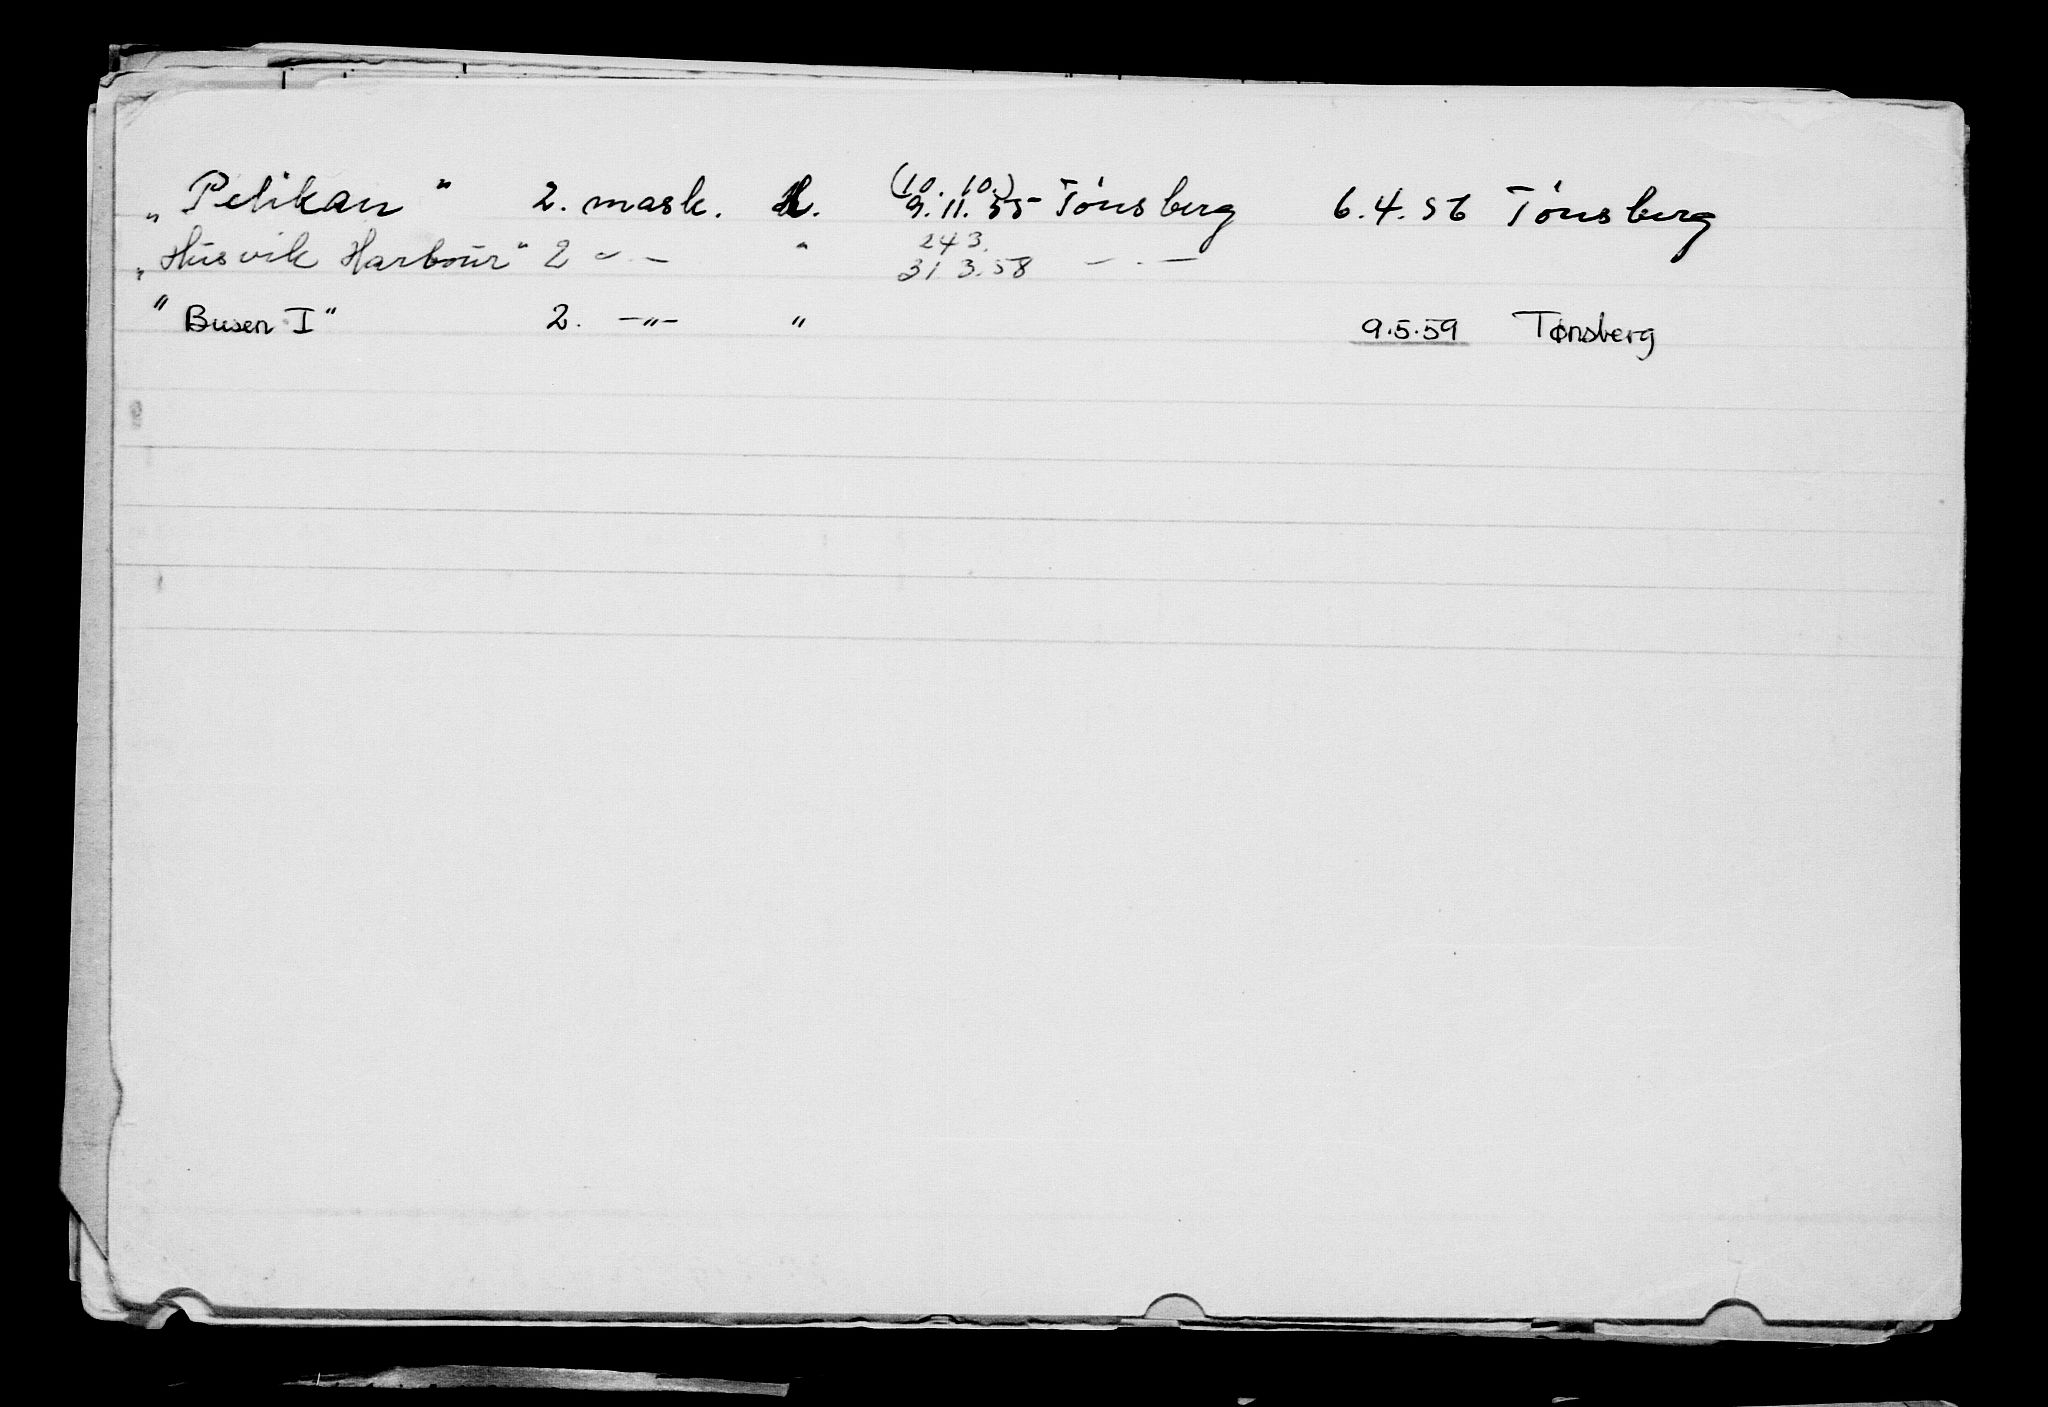 „Pelikan" 2. mask. (10. 10.) 9.11.55 Tónsberg 6.4.56 Tónsberg
„Husvik Harbour" 2 - . - " 24 3. 31 3.58 - . -
"Busen I" 2. -"- " 9.5.59 Tønsberg